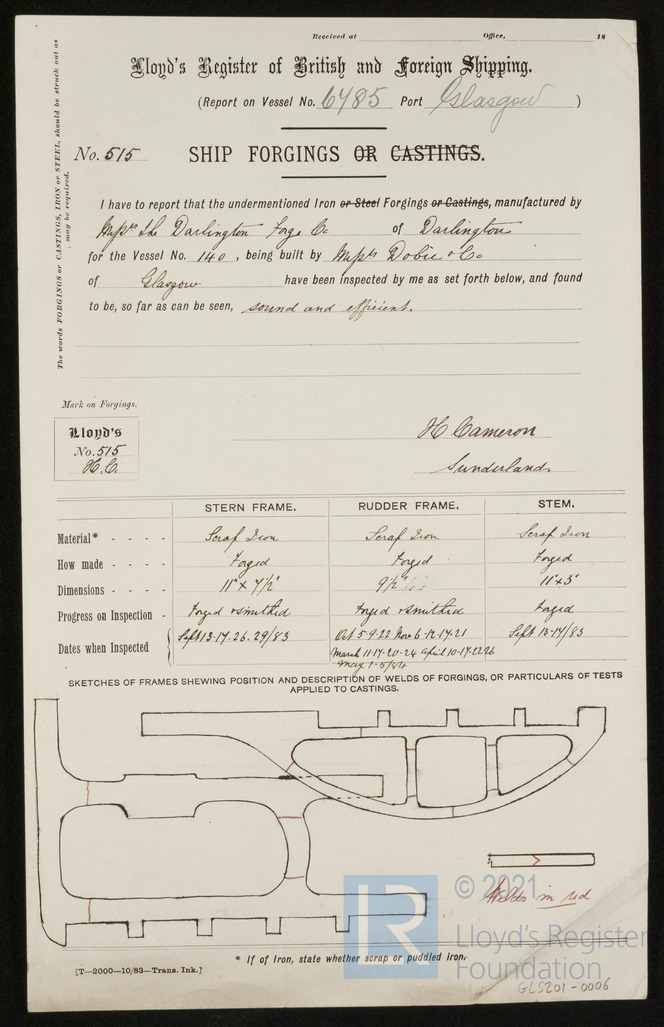 Received at Office, 18
Lloyd's Register of British and Foreign Shipping.
(Report on Vessel No. 6785 Port Glasgow )
No. 515 SHIP FORGINGS OR CASTINGS.
The words FORGINGS or CASTINGS, IRON or STEEL, should be struck out as
may be required.
I have to report that the undermentioned Iron or Steel Forgings or Castings, manufactured by
Messrs the Darlington Forge Co of Darlington
for the Vessel No. 140, being built by Messrs Dobie & Co
of Glasgow have been inspected by me as set forth below, and found
to be, so far as can be seen, sound and efficient.
Mark on Forgings.
Lloyd's
No. 515
H.C.
H Cameron
Sunderland
STERN FRAME. RUDDER FRAME. STEM.
Material* - - - - Scrap Iron Scrap Iron Scrap Iron
How made - - - - Forged Forged Forged
Dimensions - - - - 11" x 7 1/2" 9 1/2" 11" x 3"
Progress on Inspection - Forged & smithed Forged & smithed Forged
Dates when Inspected Sept 13-17-26-29/83 Oct 5-9-22 Nov 6-12-17-21 Sept 13-17/83
March 11-17-20-24 April 10-17-22-26
May 1-5/84
SKETCHES OF FRAMES SHEWING POSITION AND DESCRIPTION OF WELDS OF FORGINGS, OR PARTICULARS OF TESTS
APPLIED TO CASTINGS.
Welds in red
© 2021
LR
Lloyd's Register
Foundation
* If of Iron, state whether scrap or puddled iron.
[T—2000—10/83—Trans. Ink.]
GLS201-0006